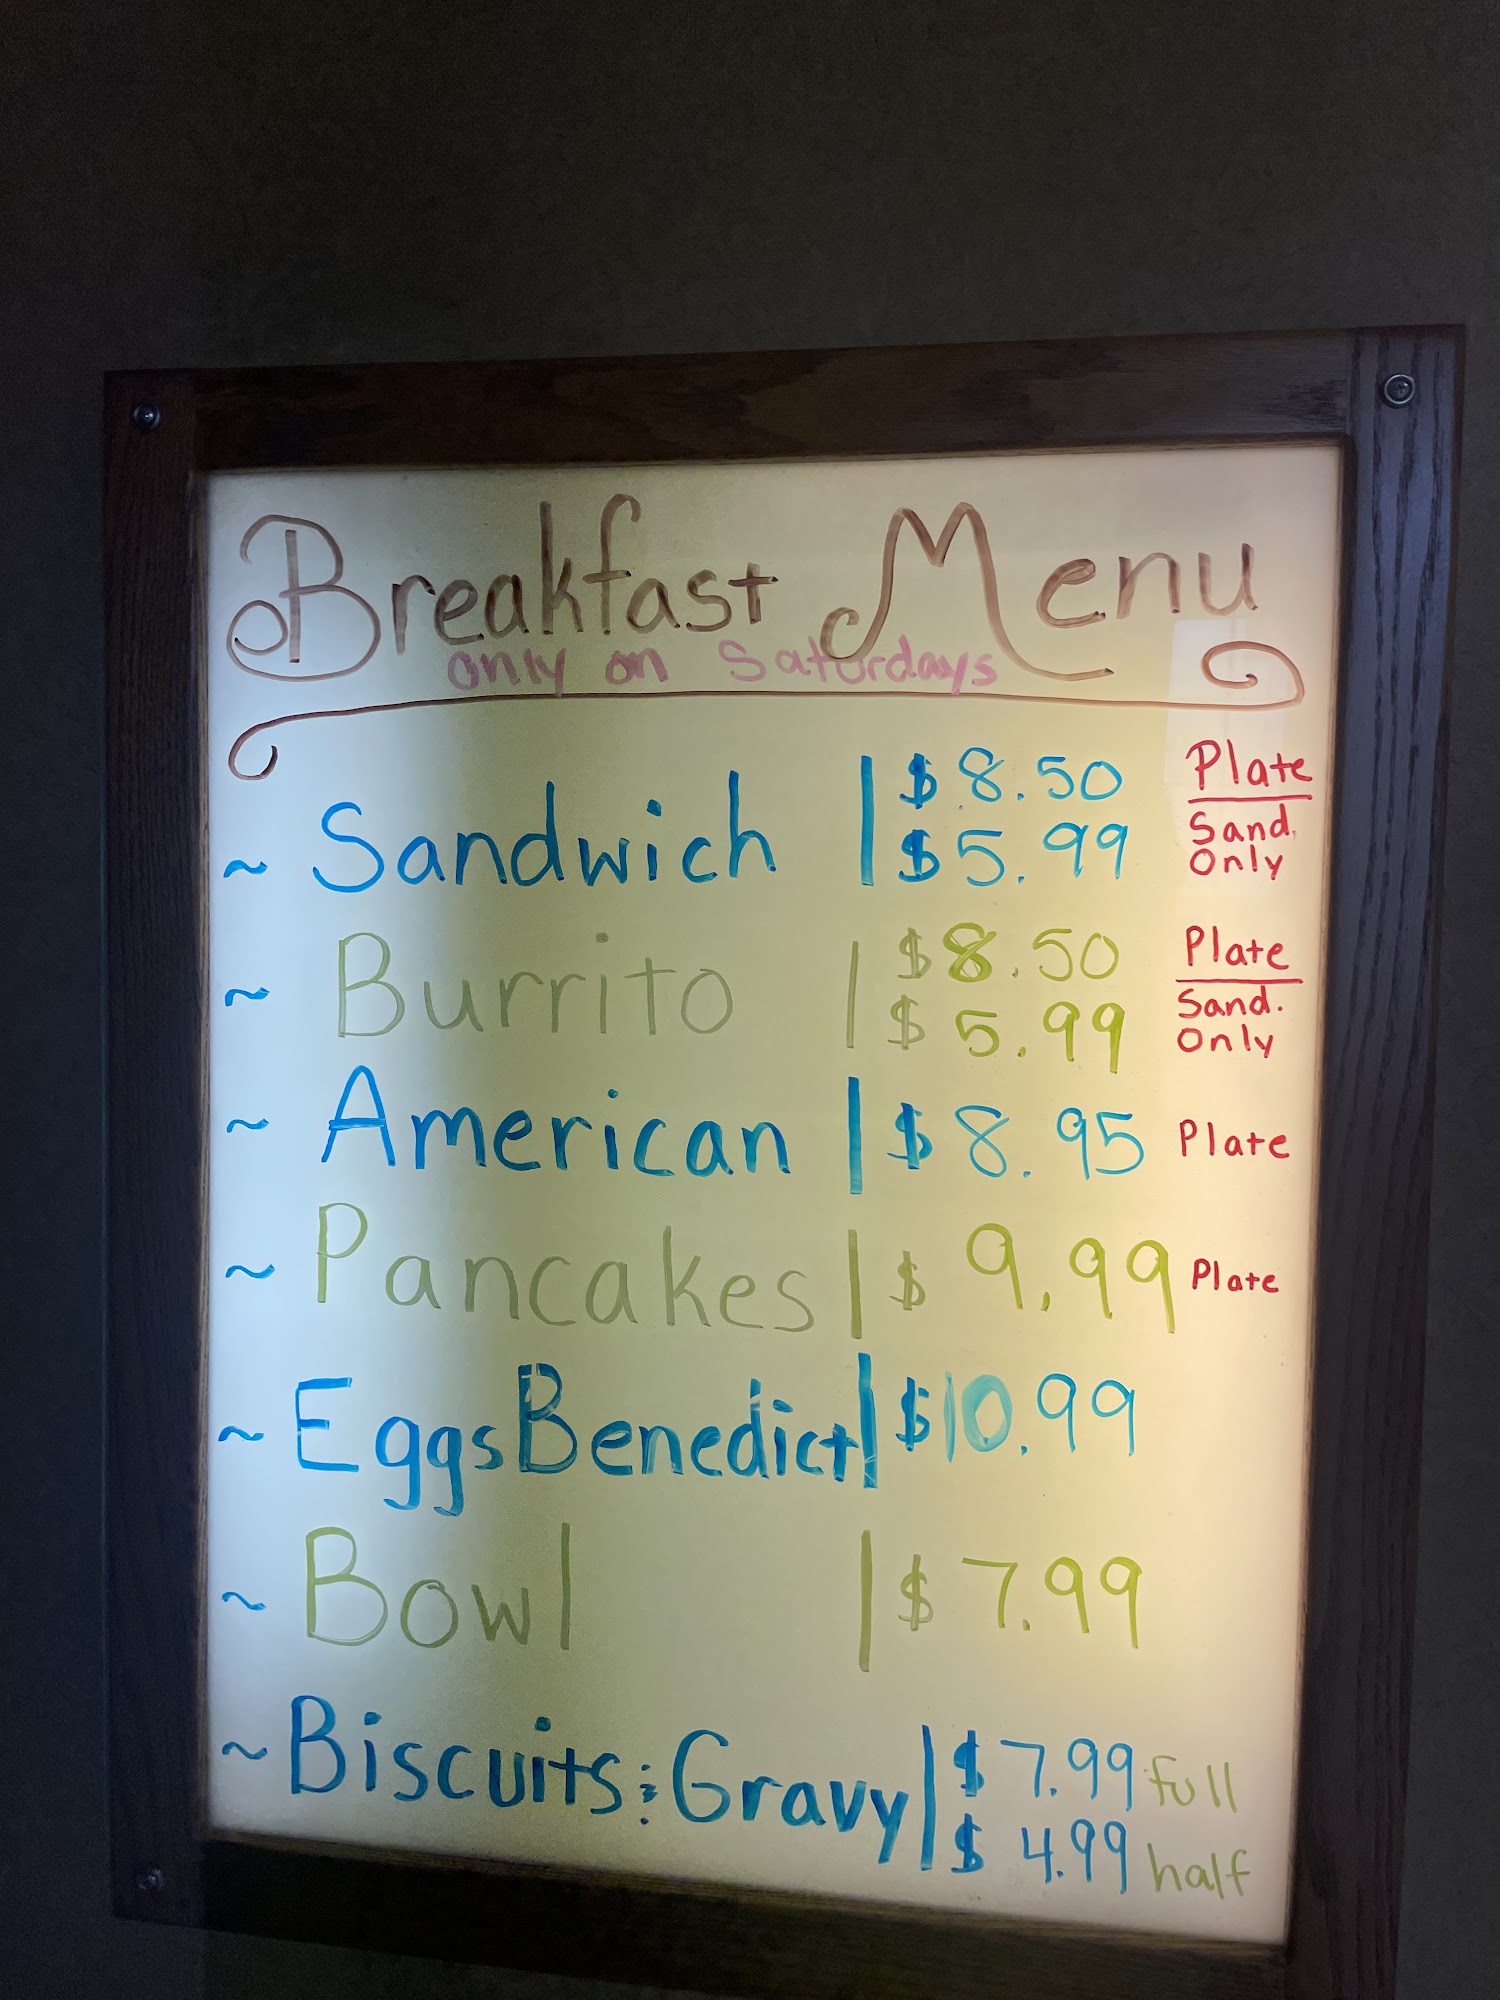 Breakfast Menu
only on Saturdays
~ Sandwich | $8.50 Plate
$5.99 Sand. Only
~ Burrito | $8.50 Plate
$5.99 Sand. Only
~ American | $8.95 Plate
~ Pancakes | $9.99 Plate
~ Eggs Benedict | $10.99
~ Bowl | $7.99
~ Biscuits & Gravy | $7.99 full
$4.99 half